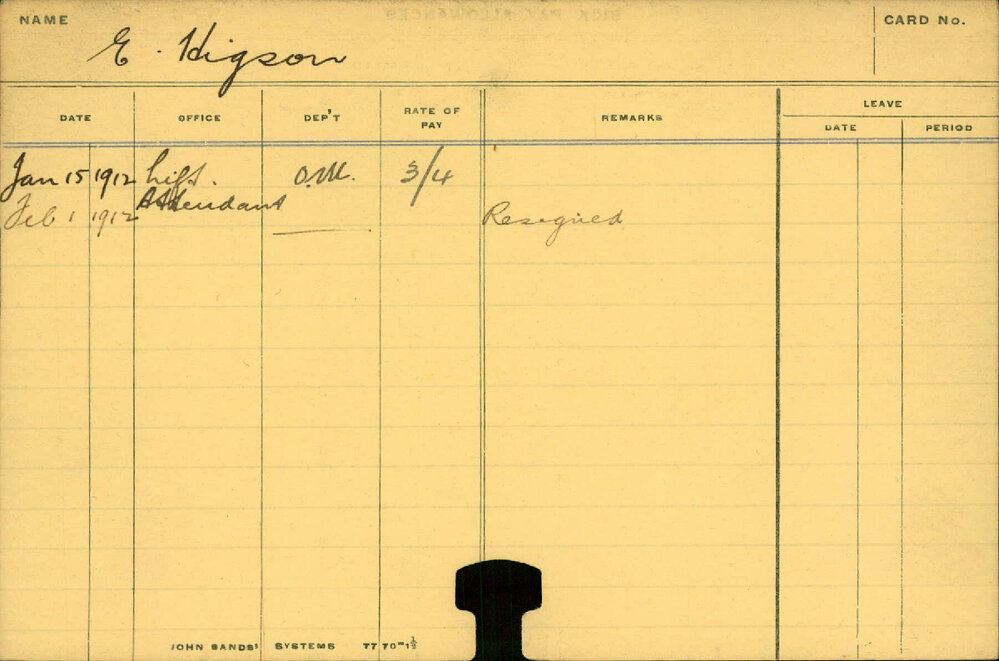 NAME
E. Higson
CARD No.
DATE OFFICE DEP'T RATE OF PAY REMARKS LEAVE
DATE PERIOD
Jan 15 1912 Lift. O.M. 3/4
Attendant
Feb 1 1912 Resigned
JOHN SANDS' SYSTEMS 77 70